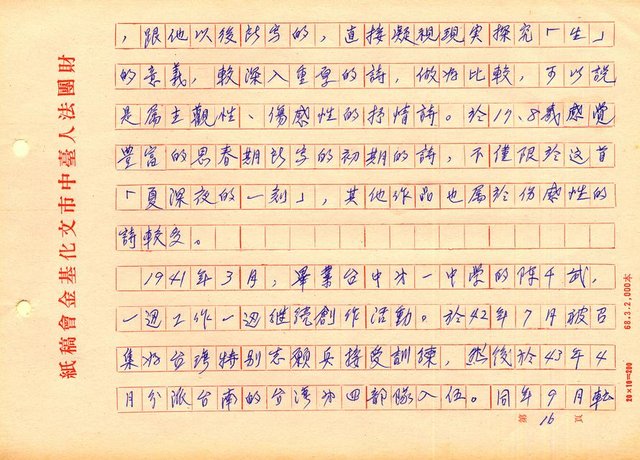 ，跟他以後所写的，直接凝視現実探究「生」
的意義，較深入重厚的詩，做为比較，可以説
是屬主觀性、傷感性的抒情詩。於17.8歲感覺
豊富的思春期所写的初期的詩，不僅限於这首
「夏深夜的一刻」，其他作品也属於伤感性的
詩較多。
1941年3月，畢業台中第一中学的陳千武，
一週工作一週继続創作活動。於42年7月被召
集为台湾特别志願兵接受訓練，然後於43年4
月分派台南的台湾第四部隊入伍。同年9月転
第16頁
財團法人臺中市文化基金會稿紙
68.3.2,000本
20×10＝200